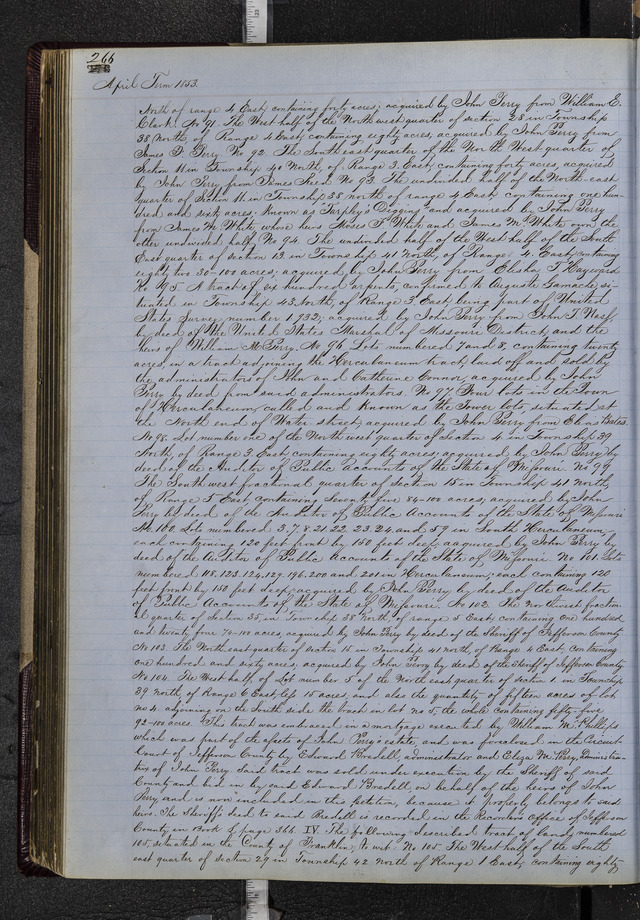 266
April Term 1853.
North of range 4 East, containing forty acres; acquired by John Perry from William E.
Clark. No 91. The West half of the North west quarter of section 28 in Township
38 North, of Range 4 East, containing eighty acres, acquired by John Perry from
James F. Perry No 92. The South east quarter of the North West quarter of
Section 11 in Township 40 North, of Range 3 East, containing forty acres, acquired
by John Perry from James Reed No 93. The undivided half of the North-east
quarter of Section 11 in Township 38 north of range 4 East, containing one hun-
dred and sixty acres, known as "Tarpley's Diggins" and acquired by John Perry
from James M. White, whose heirs Moses F. White and James M. White own the
other undivided half. No 94. The undivided half of the West half of the South
East quarter of section 13 in Township 41 North, of Range 4 East, containing
eighty two 30-100 acres; acquired by John Perry from Elisha T. Hayward
No 95. A tract of six hundred arpents, confirmed to Auguste Gamache, si-
tuated in Township 43 North, of Range 3 East, being part of United
States Survey number 1,932; acquired by John Perry from John T. Nash
by deed of the United States Marshal of Missouri District, and the
heirs of William M. Perry. No 96. Lots numbered 7 and 8, containing twenty
acres, in a tract adjoining the Herculaneum tract, laid off and sold by
the administrators of John and Catherine Connor, acquired by John
Perry by deed from said administrators. No 97. Four lots in the Town
of Herculaneum, called and known as the Tower lots, situated at
the North end of Water street, acquired by John Perry from Elias Bates.
No 98. Lot number one of the North west quarter of Section 4 in Township 39
North, of Range 3 East, containing eighty acres; acquired by John Perry by
deed of the Auditor of Public accounts of the State of Missouri. No 99
The South west fractional quarter of Section 15 in Township 41 North,
of Range 5 East containing Seventy five 54-100 acres, acquired by John
Perry by deed of the Auditor of Public Accounts of the State of Missouri
No 100. Lots numbered 3, 7, 8, 21, 22, 23, 24, and 59 in South Herculaneum
each containing 120 feet front by 150 feet deep, acquired by John Perry by
deed of the Auditor of Public Accounts of the State of Missouri. No 101. Lots
numbered 118, 123, 124, 129, 196, 200 and 201 in Herculaneum; each containing 120
feet front by 150 feet deep, acquired by John Perry by deed of the Auditor
of Public Accounts of the State of Missouri. No 102. The North west fraction-
al quarter of Section 35, in Township 38 North, of range 5 East, containing one hundred
and twenty four 70-100 acres, acquired by John Perry by deed of the Sheriff of Jefferson County
No 103. The North east quarter of Section 15 in Township 41 north of Range 4 East, containing
one hundred and sixty acres, acquired by John Perry by deed of the Sheriff of Jefferson County
No 104. The West half of Lot number 5 of the North east quarter of Section 1 in Township
39 north, of Range 6 East, less 15 acres, and also the quantity of fifteen acres of lot
no 4, adjoining on the South side the tract in lot no 5, the whole containing fifty-five
93-100 acres. This tract was embraced in a mortgage executed by William M. Phillips
which was part of the assets of John Perry's estate, and was foreclosed in the Circuit
Court of Jefferson County by Edward Bredell, administrator and Eliza M. Perry, administra-
trix of John Perry. Said tract was sold under execution by the Sheriff of said
County and bid in by said Edward Bredell, on behalf of the heirs of John
Perry, and is now included in this petition, because it properly belongs to said
heirs. The Sheriff's deed to said Bredell is recorded in the Recorder's office of Jefferson
County, in Book page 366. IV. The following described tract of land, numbered
105, situated in the County of Franklin, to wit: No 105. The West half of the South
east quarter of section 29 in Township 42 North of Range 1 East, containing eighty